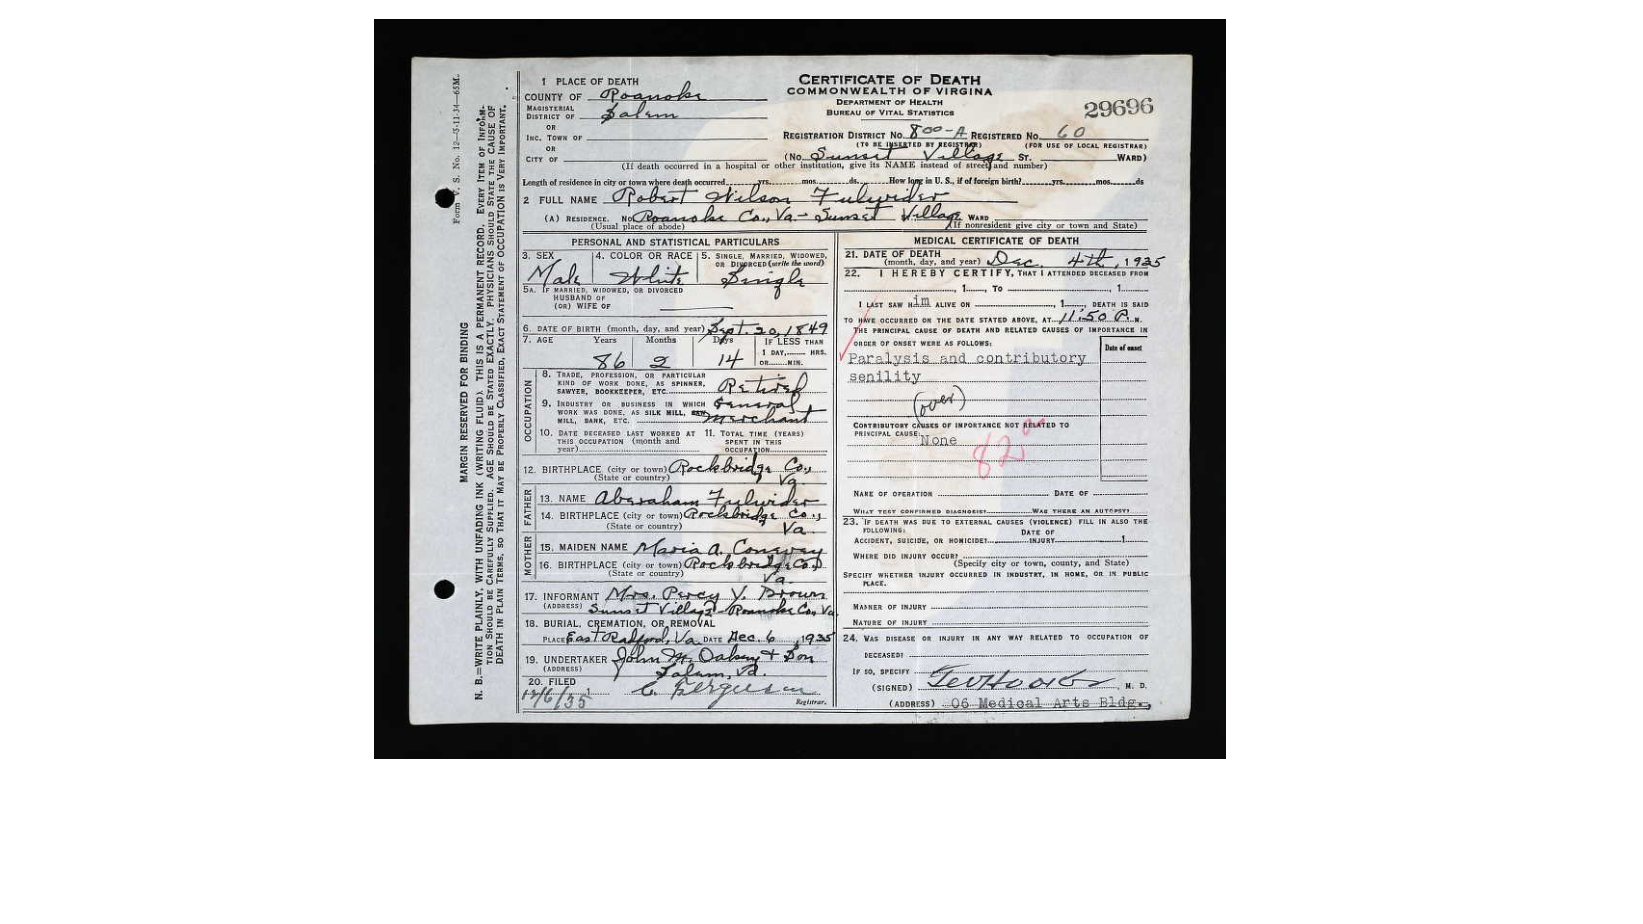 Form V. S. No. 12—5-11-34—65M.
MARGIN RESERVED FOR BINDING
N. B.—WRITE PLAINLY, WITH UNFADING INK (WRITING FLUID). THIS IS A PERMANENT RECORD. EVERY ITEM OF INFORM-
TION SHOULD BE CAREFULLY SUPPLIED. AGE SHOULD BE STATED EXACTLY. PHYSICIANS SHOULD STATE THE CAUSE OF
DEATH IN PLAIN TERMS, SO THAT IT MAY BE PROPERLY CLASSIFIED. EXACT STATEMENT OF OCCUPATION IS VERY IMPORTANT.
CERTIFICATE OF DEATH
COMMONWEALTH OF VIRGINIA
DEPARTMENT OF HEALTH
BUREAU OF VITAL STATISTICS
29696
1 PLACE OF DEATH
COUNTY OF Roanoke
MAGISTERIAL
DISTRICT OF Salem
OR
INC. TOWN OF
OR
CITY OF
REGISTRATION DISTRICT NO. 800-A REGISTERED NO. 60
(TO BE INSERTED BY REGISTRAR) (FOR USE OF LOCAL REGISTRAR)
(No. Sunset Village ST. WARD)
(If death occurred in a hospital or other institution, give its NAME instead of street and number)
Length of residence in city or town where death occurred yrs. mos. ds. How long in U. S., if of foreign birth? yrs. mos. ds
2 FULL NAME Robert Wilson Fulwider
(A) RESIDENCE. No. Roanoke Co., Va- Sunset Village WARD
(Usual place of abode) (If nonresident give city or town and State)
PERSONAL AND STATISTICAL PARTICULARS
3. SEX Male
4. COLOR OR RACE White
5. SINGLE, MARRIED, WIDOWED,
OR DIVORCED (write the word)
Single
5A. IF MARRIED, WIDOWED, OR DIVORCED
HUSBAND OF
(OR) WIFE OF
6. DATE OF BIRTH (month, day, and year) Sept. 20, 1849
7. AGE Years Months Days IF LESS THAN
1 DAY, HRS.
OR MIN.
86 2 14
OCCUPATION
8. TRADE, PROFESSION, OR PARTICULAR
KIND OF WORK DONE, AS SPINNER,
SAWYER, BOOKKEEPER, ETC. Retired
9. INDUSTRY OR BUSINESS IN WHICH General
WORK WAS DONE, AS SILK MILL, SAW Merchant
MILL, BANK, ETC.
10. DATE DECEASED LAST WORKED AT
THIS OCCUPATION (month and
year)
11. TOTAL TIME (YEARS)
SPENT IN THIS
OCCUPATION
12. BIRTHPLACE (city or town) Rockbridge Co.,
(State or country) Va.
FATHER
13. NAME Aberaham Fulwider
14. BIRTHPLACE (city or town) Rockbridge Co.,
(State or country) Va.
MOTHER
15. MAIDEN NAME Maria A. Conway
16. BIRTHPLACE (city or town) Rockbridge Co.
(State or country) Va.
17. INFORMANT Mrs. Percy V. Brown
(ADDRESS) Sunset Village- Roanoke Co, Va.
18. BURIAL, CREMATION, OR REMOVAL
PLACE East Radford, Va DATE Dec. 6, 1935
19. UNDERTAKER John M. Oakey & Son
(ADDRESS) Salem, Va.
20. FILED
12/6/35 C. Ferguson
Registrar.
MEDICAL CERTIFICATE OF DEATH
21. DATE OF DEATH
(month, day, and year) Dec. 4th, 1935
22. I HEREBY CERTIFY, THAT I ATTENDED DECEASED FROM
, 1 , TO , 1
I LAST SAW Him ALIVE ON , 1 , DEATH IS SAID
TO HAVE OCCURRED ON THE DATE STATED ABOVE, AT 11:50 P. M.
THE PRINCIPAL CAUSE OF DEATH AND RELATED CAUSES OF IMPORTANCE IN
ORDER OF ONSET WERE AS FOLLOWS:
Date of onset
Paralysis and contributory
senility
(over)
CONTRIBUTORY CAUSES OF IMPORTANCE NOT RELATED TO
PRINCIPAL CAUSE:
None
82
NAME OF OPERATION DATE OF
WHAT TEST CONFIRMED DIAGNOSIS? WAS THERE AN AUTOPSY?
23. IF DEATH WAS DUE TO EXTERNAL CAUSES (VIOLENCE) FILL IN ALSO THE
FOLLOWING:
DATE OF
ACCIDENT, SUICIDE, OR HOMICIDE? INJURY 1
WHERE DID INJURY OCCUR?
(Specify city or town, county, and State)
SPECIFY WHETHER INJURY OCCURRED IN INDUSTRY, IN HOME, OR IN PUBLIC
PLACE.
MANNER OF INJURY
NATURE OF INJURY
24. WAS DISEASE OR INJURY IN ANY WAY RELATED TO OCCUPATION OF
DECEASED?
IF SO, SPECIFY
(SIGNED) , M. D.
(ADDRESS) 06 Medical Arts Bldg.,